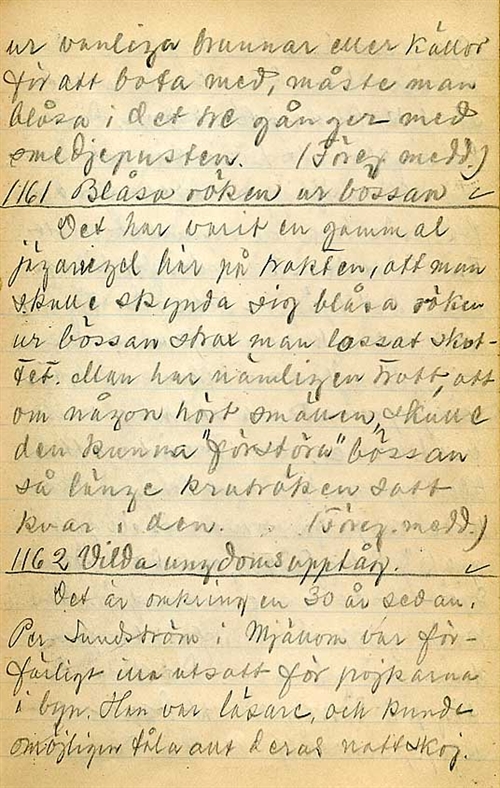 ur vanliga brunnar eller källor
för att bota med, måste man
blåsa i det tre gånger med
smedjepusten. (Föreg. medd.)
1161 Blåsa röken ur bössan ✓
Det har varit en gammal
jägareregel här på trakten, att man
skulle skynda sig blåsa röken
ur bössan strax man lossat skot-
tet. Man har nämligen trott, att
om någon hört smällen, skulle
den kunna "förstöra" bössan
så länge krutröken satt
kvar i den. (Föreg. medd.)
1162 Vilda ungdomsupptåg. ✓
Det är omkring en 30 år sedan.
Per Sundström i Mjällom var för-
färligt illa utsatt för pojkarna
i byn. Han var läsare, och kunde
omöjligen tåla allt deras nattskoj.